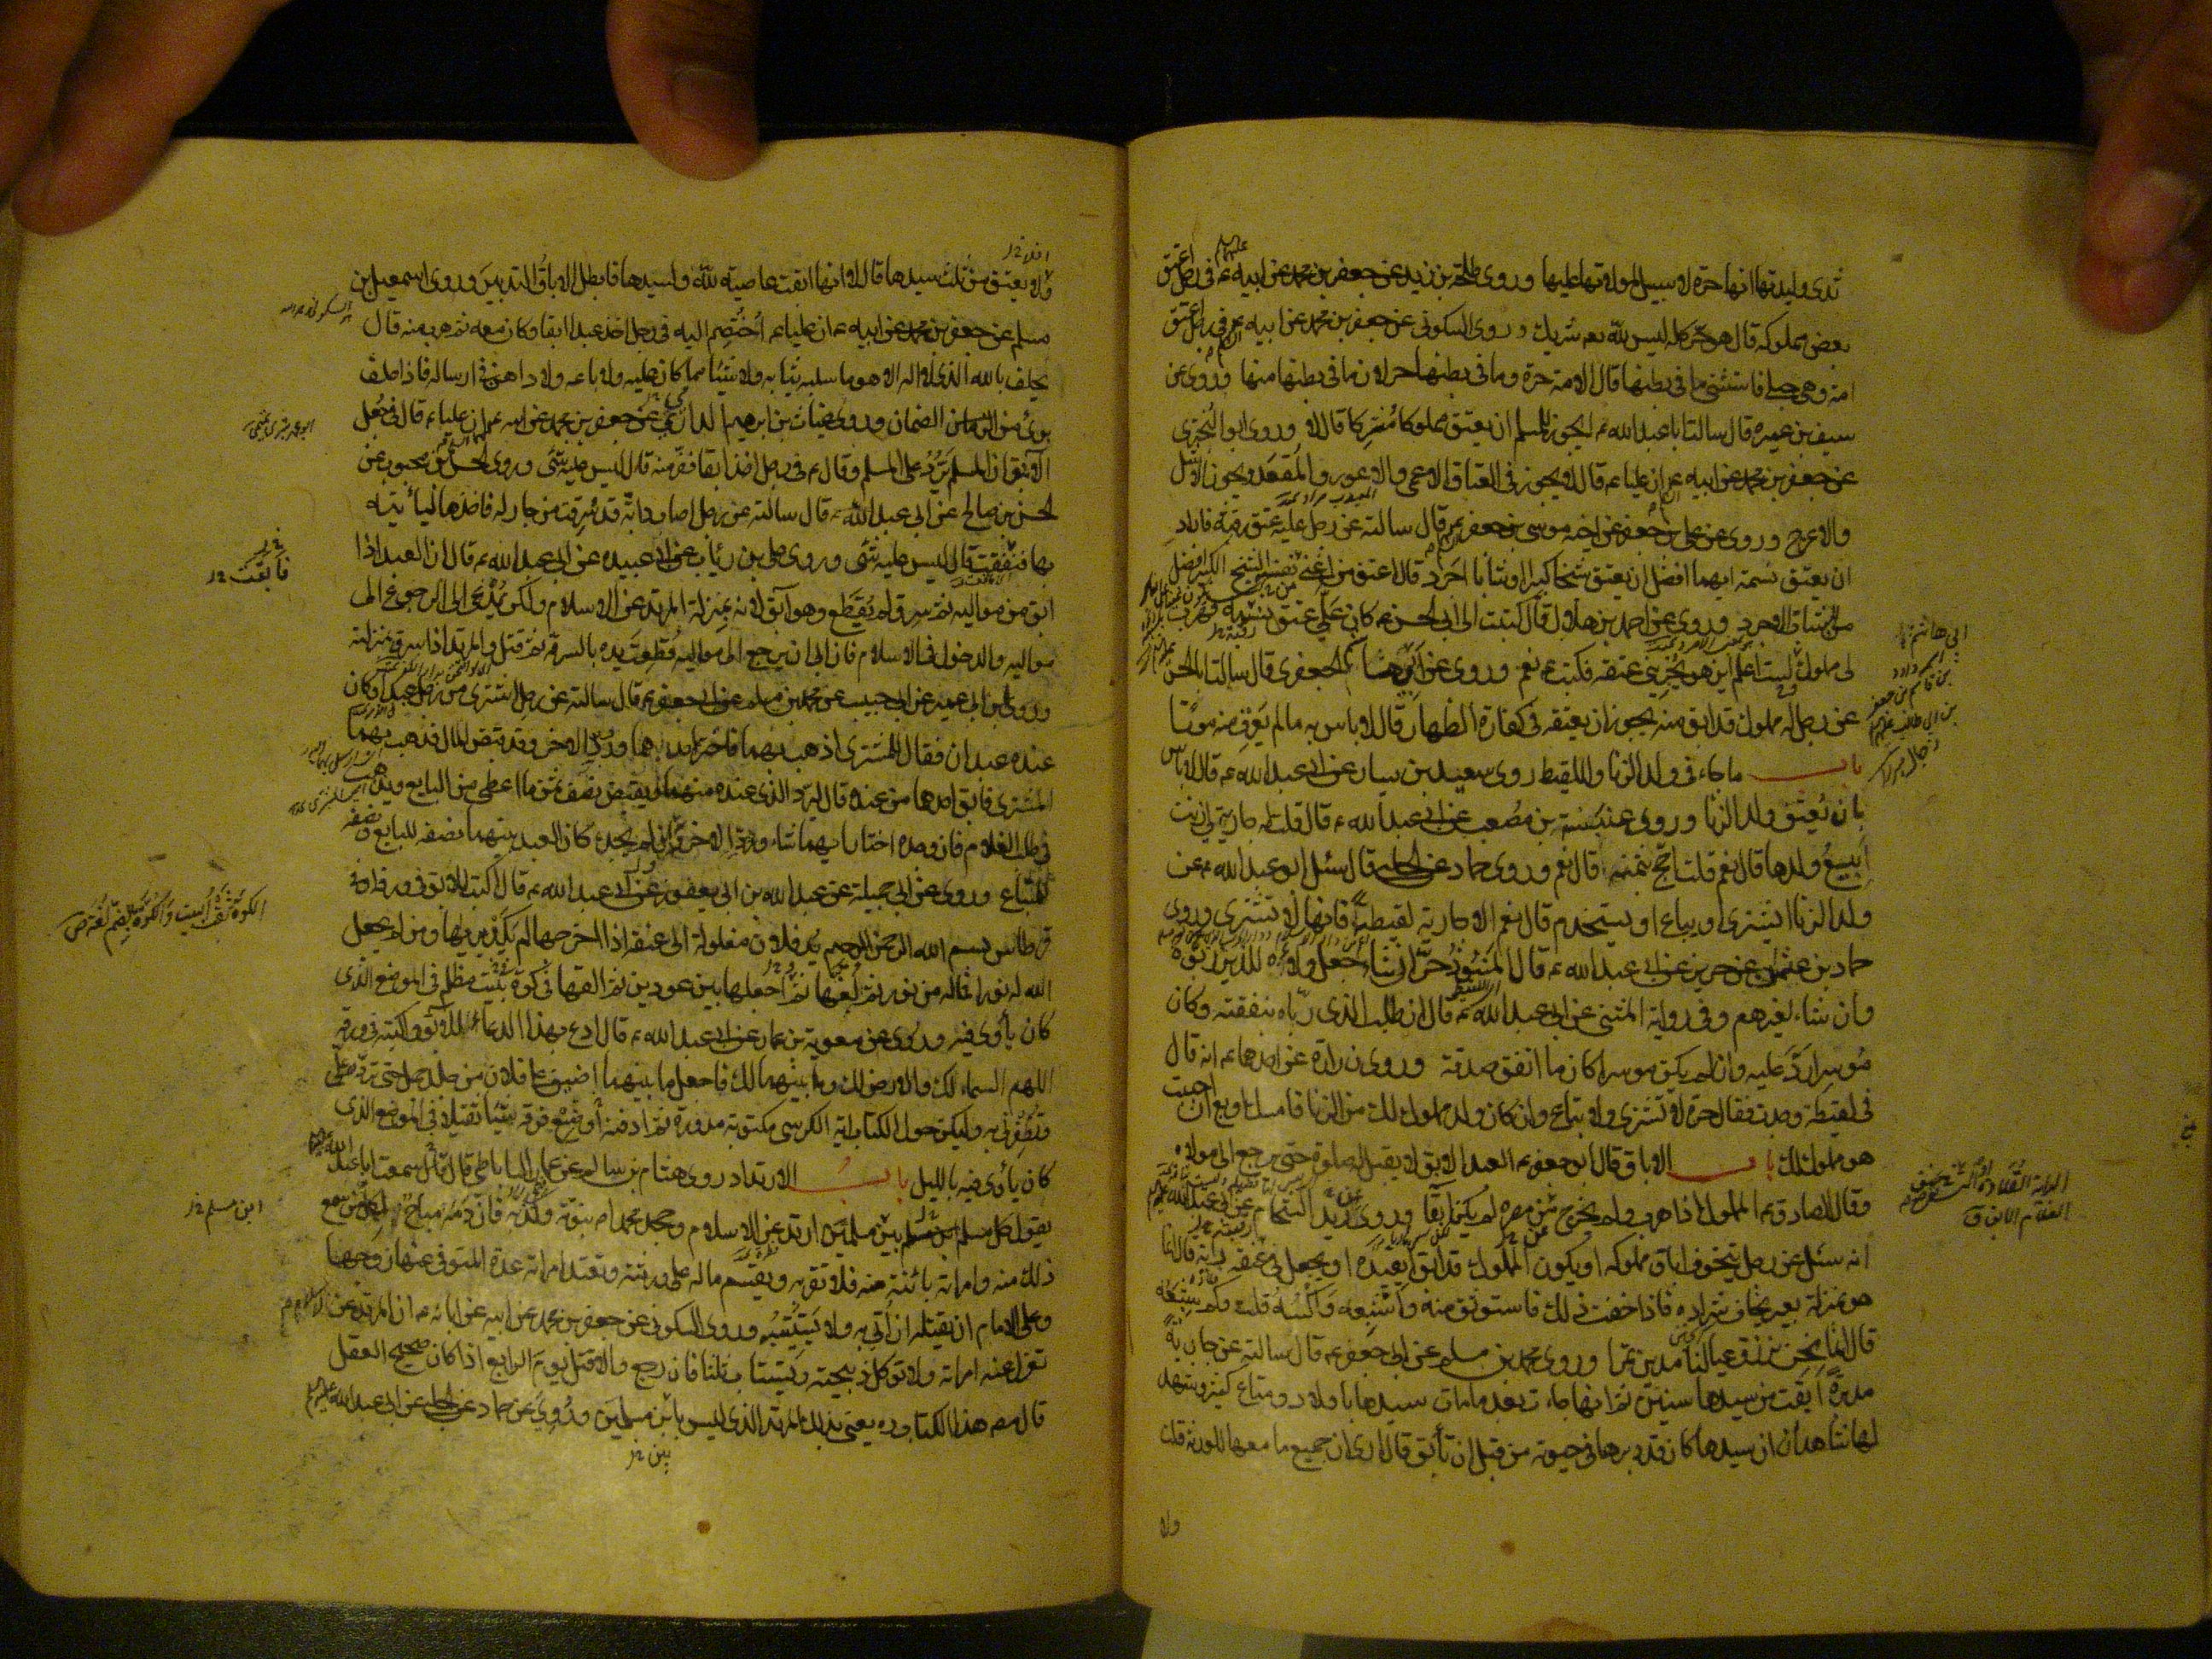 ثدى وليدتها انها حرة لا سبيل لمولاتها عليها وروى طلحة بن زيد عن جعفر بن محمد عن ابيه ع في رجل اعتق
بعض مملوكه قال هو حر كله ليس لله عم شريك وروى السكونى عن جعفر بن محمد عن ابيه ع في رجل اعتق
امة وهى حبلى فاستثنى ما فى بطنها قال الامة حرة وما فى بطنها حر لان ما فى بطنها منها وروى عن
سيف بن عميرة قال سالت ابا عبد الله ع ايجوز للمسلم ان يعتق مملوكا مشركا قال لا وروى ابو البخترى
عن جعفر بن محمد عن ابيه ع ان عليا ع قال لا يجوز فى العتاق الاعمى والاعور والمقعد ويجوز الاشل
والاعرج وروى عن على بن جعفر عن اخيه موسى بن جعفر ع قال سالته عن رجل عليه عتق رقبة فاراد
ان يعتق نسمة ايهما افضل ان يعتق شيخا كبيرا او شابا اجرد قال اعتق من اغنى نفسه الشيخ الكبير افضل
من الشاب الاجرد وروى عن احمد بن هلال قال كتبت الى ابى الحسن ع كان على عتق رقبة فهرب
لى مملوك لست اعلم اين هو يجزينى عتقه فكتب ع نعم وروى عن ابى هاشم الجعفرى قال سالت ابا الحسن
عن رجل له مملوك قد ابق منه يجوز ان يعتقه فى كفارة الظهار قال لا باس به ما لم يعرف منه موتا
باب ما جاء فى ولد الزنا واللقيط روى سعيد بن يسار عن ابى عبد الله ع قال لا باس
بان يعتق ولد الزنا وروى عنبسة بن مصعب عن ابى عبد الله ع قال قلت له جارية لى زنت
ابيع ولدها قال نعم قلت احج بثمنه قال نعم وروى حماد عن الحلبى قال سئل ابو عبد الله ع عن
ولد الزنا ايشترى او يباع او يستخدم قال نعم الا جارية لقيطة فانها لا تشترى وروى
حماد بن عثمان عن حريز عن ابى عبد الله ع قال المنبوذ حر ان شاء جعل ولاءه للذين ربوه
وان شاء لغيرهم وفى رواية المثنى عن ابى عبد الله ع قال ان طلب الذى رباه بنفقته وكان
موسرا رد عليه وان لم يكن موسرا كان ما انفق صدقة وروى زرارة عن احدهما ع انه قال
فى لقيطة وجدت فقال حرة لا تشترى ولا تباع وان كان ولد مملوك لك من الزنا فامسك او بع ان احببت
هو مملوك لك باب الاباق قال ابو جعفر ع العبد الابق لا يقبل له صلوة حتى يرجع الى مولاه
وقال الصادق ع المملوك اذا هرب ولم يخرج من مصره لم يكن ابقا وروى زيد الشحام عن ابى عبد الله ع
انه سئل عن رجل يتخوف اباق مملوكه او يكون المملوك قد ابق ايقيده او يجعل فى عنقه راية قال انما
هو بمنزلة بعير يخاف شراده فاذا خفت ذلك فاستوثق منه واشبعه واكسه قلت وكم شبعه
قال انما نحن نرزق عيالنا مدين تمرا وروى محمد بن مسلم عن ابى جعفر ع قال سالته عن جارية
مدبرة ابقت من سيدها سنين ثم انها جاءت بعد ما مات سيدها باولاد ومتاع كثير وشهد
لها شاهدان ان سيدها كان قد دبرها فى حيوته من قبل ان تأبق قال ارى ان جميع ما معها للورثة قلت
ولا
ولا يعتق من ثلث سيدها قال لا انها ابقت عاصية لله ولسيدها فابطل الاباق التدبير وروى اسمعيل بن
مسلم عن جعفر بن محمد عن ابيه ع ان عليا ع اختصم اليه فى رجل اخذ عبدا ابقا وكان معه ثم هرب منه قال
يحلف بالله الذى لا اله الا هو ما سلبه ثيابه ولا شيئا مما كان عليه ولا باعه ولا داهن فى ارساله فاذا حلف
برئ من الضمان وروى غياث بن ابرهيم الدارمى عن جعفر بن محمد عن ابيه ع ان عليا ع قال فى جعل
الابق ان المسلم يرد على المسلم وقال ع فى رجل اخذ ابقا ففر منه قال ليس عليه شئ وروى الحسن بن محبوب عن
الحسن بن صالح عن ابى عبد الله ع قال سالته عن رجل اصاب دابة قد سرقت من جار له فاخذها ليأتيه
بها فنفقت قال ليس عليه شئ وروى على بن رئاب عن ابى عبيدة عن ابى عبد الله ع قال ان العبد اذا
ابق من مواليه ثم سرق لم يقطع وهو آبق لانه بمنزلة المرتد عن الاسلام ولكن يدعى الى الرجوع الى
مواليه والدخول فى الاسلام فان ابى ان يرجع الى مواليه قطعت يده بالسرقة ثم قتل والمرتد اذا سرق بمنزلته
وروى ابن ابى عمير عن ابى حبيب عن محمد بن مسلم عن ابى جعفر ع قال سالته عن رجل اشترى من رجل عبدا وكان
عنده عبدان فقال للمشترى اذهب بهما فاختر ايهما ورد الاخر وقد قبض المال فذهب بهما
المشترى فابق احدهما من عنده قال ليرد الذى عنده منهما ويقبض نصف ثمن ما اعطى من البايع ويذهب
فى طلب الغلام فان وجده اختار ايهما شاء ورد الاخر وان لم يجد كان العبد بينهما نصفه للبايع ونصفه
للمبتاع وروى عن ابى جميلة عن عبد الله بن ابى يعفور عن ابى عبد الله ع قال اكتب للابق فى ورقة او فى
قرطاس بسم الله الرحمن الرحيم يد فلان مغلولة الى عنقه اذا اخرجها لم يكد يريها ومن لم يجعل
الله له نورا فما له من نور ثم لفها ثم اجعلها بين عودين ثم القها فى كوة بيت مظلم فى الموضع الذى
كان يأوى فيه وروى عن معوية بن عمار عن ابى عبد الله ع قال ادع بهذا الدعاء للابق واكتبه فى ورقة
اللهم السماء لك والارض لك وما بينهما لك فاجعل ما بينهما اضيق على فلان من جلد جمل حتى ترده على
وتظفرنى به وليكن حول الكتاب اية الكرسى مكتوبة مدورة ثم ادفنه او ضع فوقه شيئا ثقيلا فى الموضع الذى
كان يأوى فيه بالليل باب الارتداد روى هشام بن سالم عن عمار الساباطى قال سمعت ابا عبد الله ع
يقول كل مسلم بين مسلمين ارتد عن الاسلام وجحد محمدا ص نبوته وكذبه فان دمه مباح لكل من سمع
ذلك منه وامراته بائنة منه فلا تقربه ويقسم ماله على ورثته وتعتد امراته عدة المتوفى عنها زوجها
وعلى الامام ان يقتله ان أتى به ولا يستتيبه وروى السكونى عن جعفر بن محمد عن ابيه عن ابائه ع ان المرتد عن الاسلام
تعزل عنه امراته ولا توكل ذبيحته ويستتاب ثلثا فان رجع والا قتل يوم الرابع اذا كان صحيح العقل
قال مصنف هذا الكتاب ره يعنى بذلك المرتد الذى ليس بابن مسلمين وروى عن حماد عن الحلبى عن ابى عبد الله ع